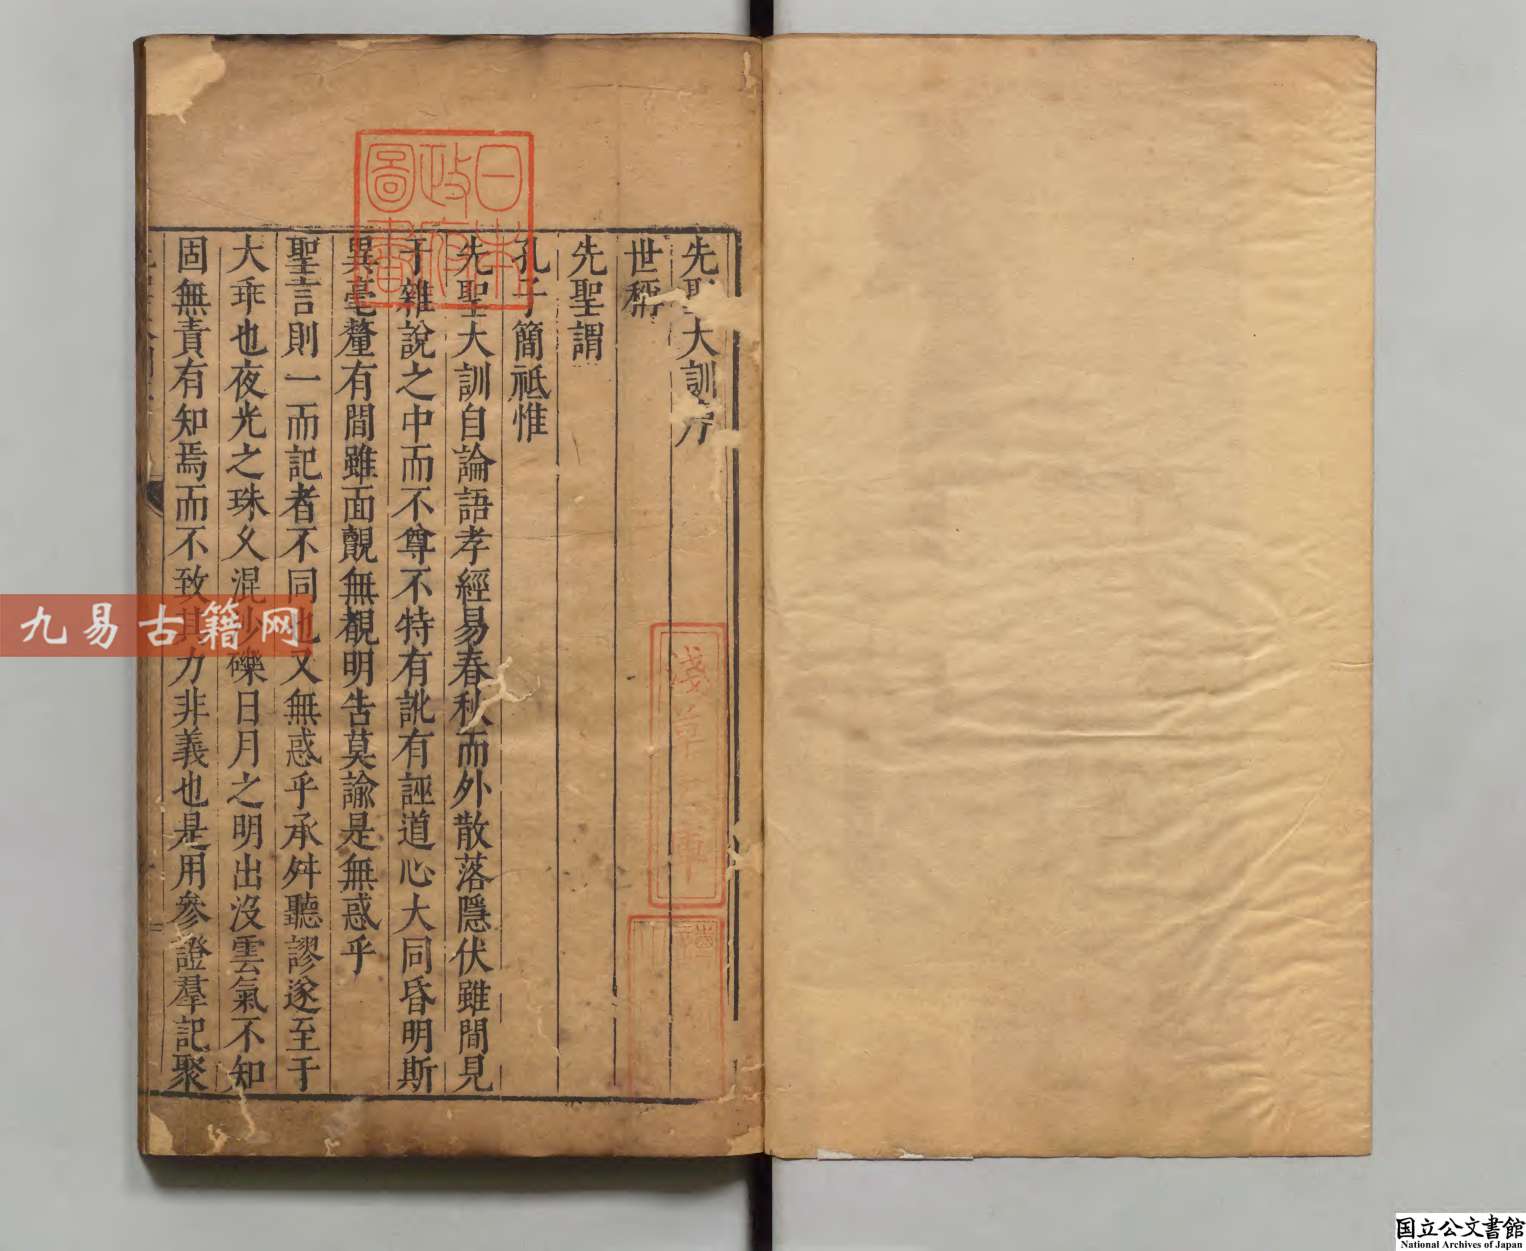 先聖大訓序
世稱
先聖謂
孔子簡祗惟
先聖大訓自論語孝經易春秋而外散落隱伏雖間見
于雜說之中而不尊不特有訛有誣道心大同昏明斯
異毫釐有間雖面覿無覩明告莫諭是無惑乎
聖言則一而記者不同也又無惑乎承舛聽謬遂至于
大乖也夜光之珠乆混沙礫日月之明出沒雲氣不知
固無責有知焉而不致其力非義也是用參證羣記聚
日本政府圖書
淺草文庫
九易古籍网
国立公文書館
National Archives of Japan